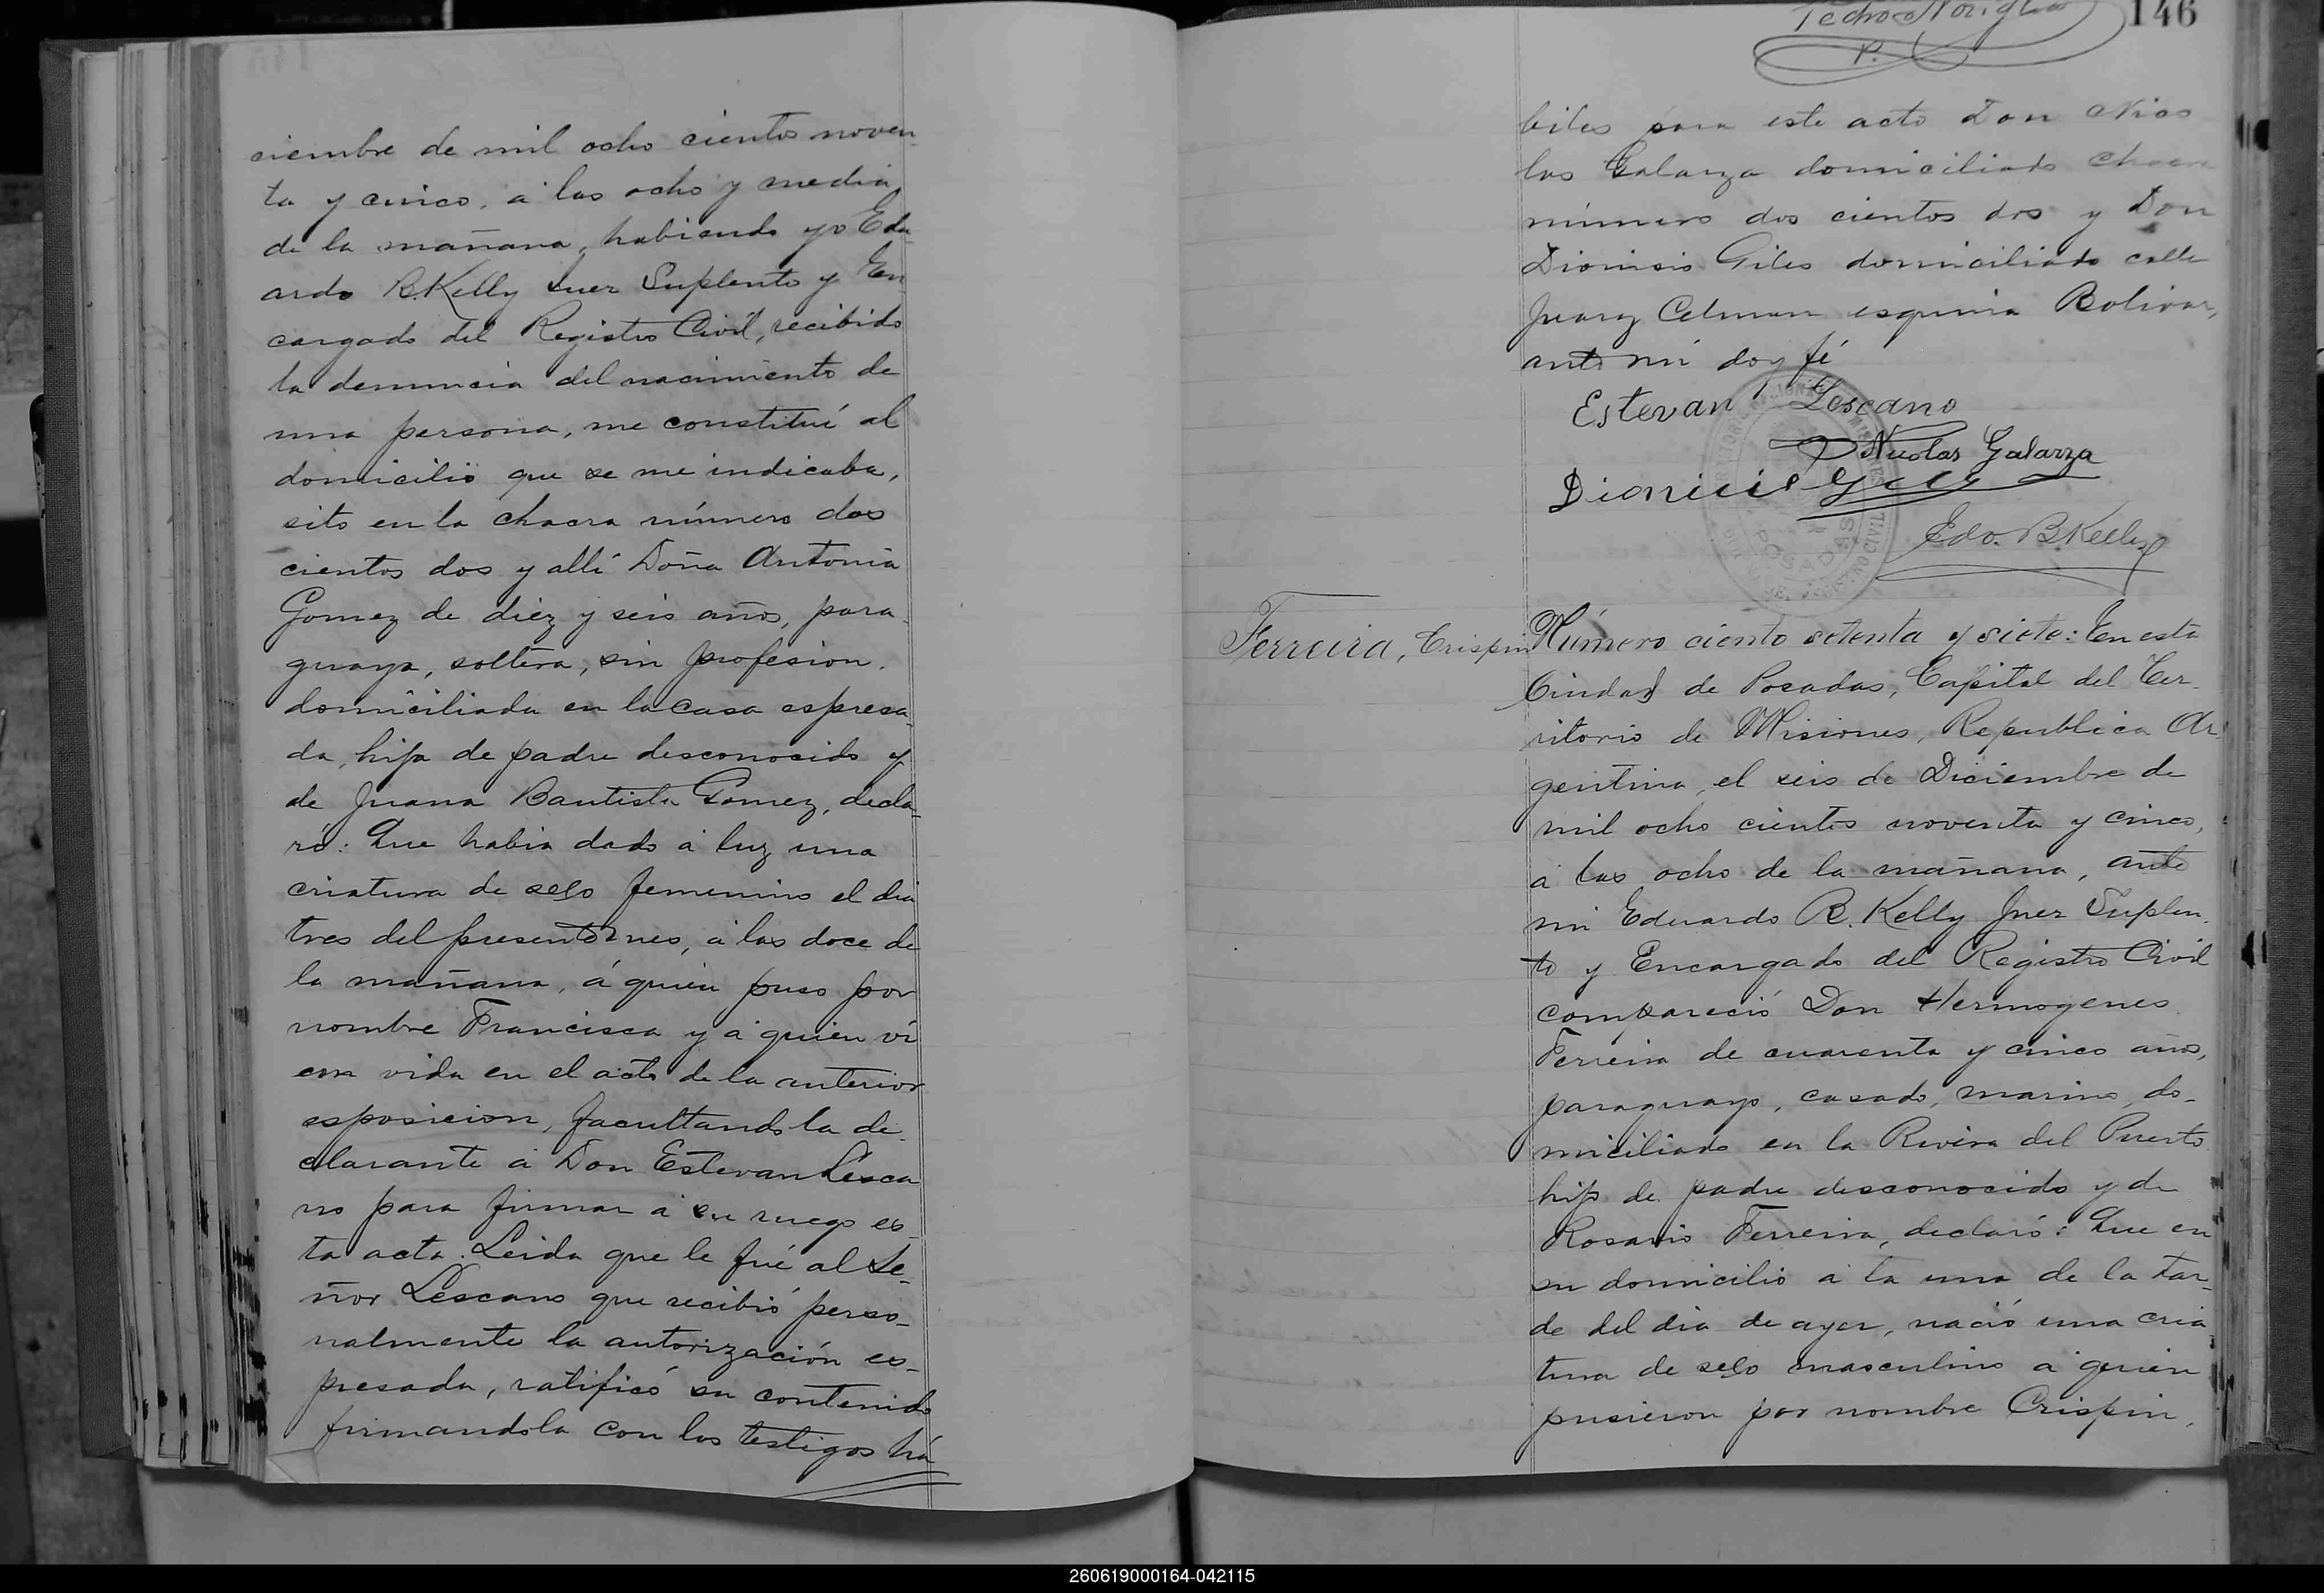 ciembre de mil ocho cientos noven
ta y cinco, a las ocho y media
de la mañana, habiendo yo Edu
ardo B. Kelly Juez Suplente y En
cargado del Registro Civil, recibido
la denuncia del nacimiento de
una persona, me constituí al
domicilio que se me indicaba,
sito en la chacra número dos
cientos dos y allí Doña Antonia
Gomez de diez y seis años, para-
guaya, soltera, sin profesion,
domiciliada en la casa espresa-
da, hija de padre desconocido y
de Juana Bautista Gomez, decla-
ró: Que habia dado á luz una
criatura de seso femenino el dia
tres del presente mes, á las doce de
la mañana, á quien puso por
nombre Francisca y á quien ví
con vida en el acto de la anterior
esposicion, facultando la de-
clarante á Don Estevan Lesca
no para firmar á su ruego es-
ta acta. Leida que le fué al Se-
ñor Lescano que recibió perso-
nalmente la autorización es-
presada, ratificó su contenido
firmandola con los testigos há
146
biles para este acto Don Nico
las Galarza domiciliado chacra
número dos cientos dos y Don
Dionisio Giles domiciliado calle
Juarez Celman esquina Bolivar,
ante mí doy fé
Estevan Lescano
Nicolas Galarza
Dionicio Giles
Edo. B. Kelly
POSADAS
REGISTRO CIVIL
Ferreira, Crispin
Número ciento setenta y siete: En esta
Ciudad de Posadas, Capital del Ter-
ritorio de Misiones, Republica Ar-
gentina, el seis de Diciembre de
mil ocho cientos noventa y cinco,
á las ocho de la mañana, ante
mi Eduardo B. Kelly Juez Suplen-
te y Encargado del Registro Civil
compareció Don Hermogenes
Ferreira de cuarenta y cinco años,
paraguayo, casado, marino, do-
miciliado en la Rivera del Puerto
hijo de padre desconocido y de
Rosario Ferreira, declaró: Que en
su domicilio á la una de la tar-
de del dia de ayer, nació una cria
tura de seso masculino á quien
pusieron por nombre Crispin,